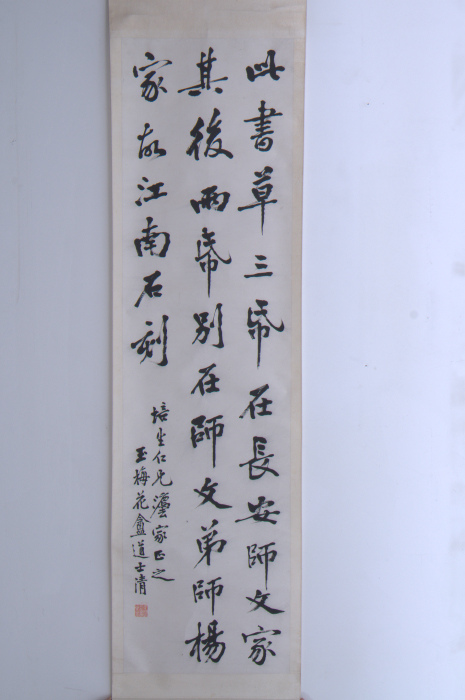 此書草三帋在長安師文家
其後兩帋別在師文弟師楊
家故江南石刻
培生仁兄鑒家正之
玉梅花盦道士清